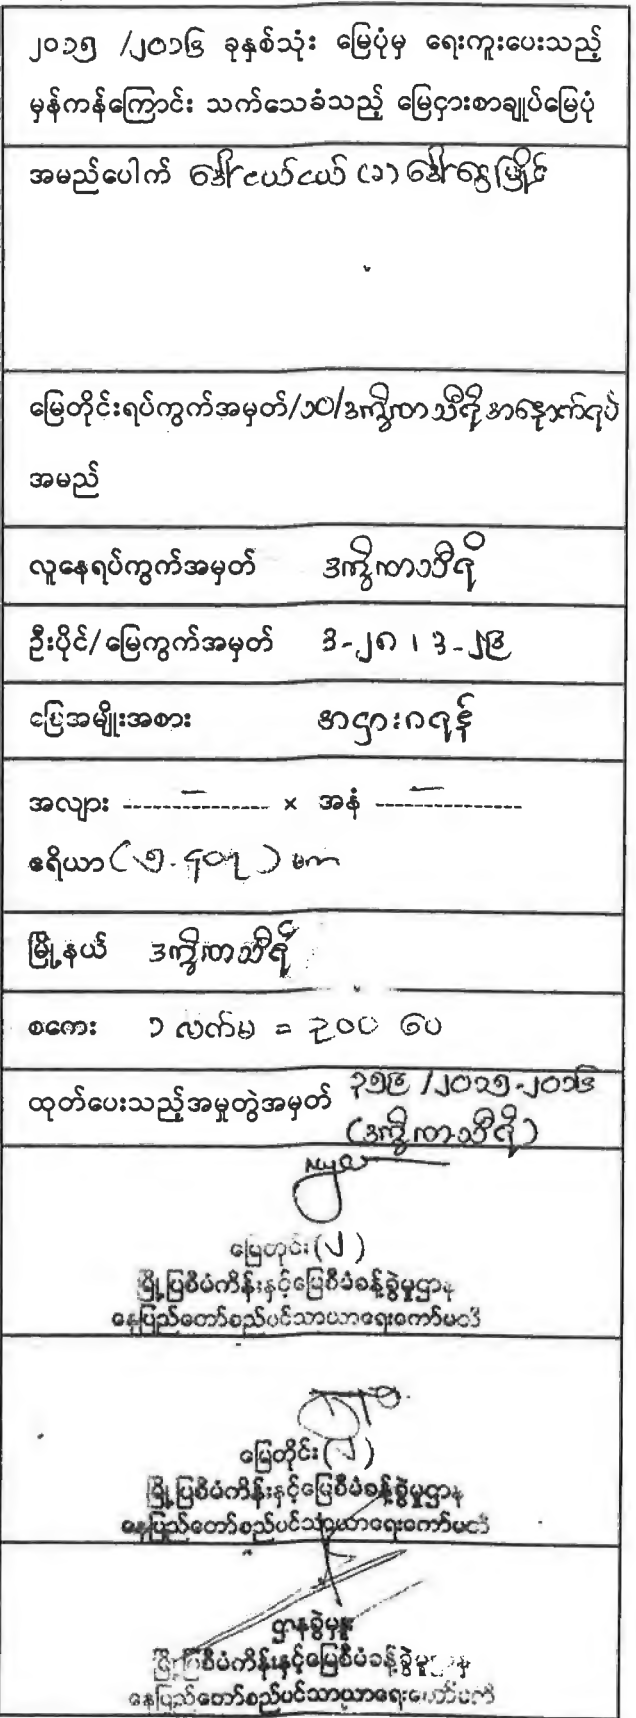 ၂၀၁၅ /၂၀၁၆ ခုနှစ်သုံး မြေပုံမှ ရေးကူးပေးသည့်
မှန်ကန်ကြောင်း သက်သေခံသည့် မြေငှားစာချုပ်မြေပုံ
အမည်ပေါက် ဒေါ်ငယ်ငယ် (ခ) ဒေါ်နွေဖြိုင်
မြေတိုင်းရပ်ကွက်အမှတ်/၁၀/ဒက္ခိဏသီရိအနောက်ရပ်
အမည်
လူနေရပ်ကွက်အမှတ် ဒက္ခိဏသီရိ
ဦးပိုင်/မြေကွက်အမှတ် ဒ-၂၈ ၊ ဒ-၂၉
မြေအမျိုးအစား အငှားဂရန်
အလျား ---------------- × အနံ ----------------
ဧရိယာ (၅.၄၀၇) ဧက
မြို့နယ် ဒက္ခိဏသီရိ
စကေး ၁ လက်မ = ၃၀၀ ပေ
ထုတ်ပေးသည့်အမှုတွဲအမှတ် ၃၅၉ /၂၀၁၅-၂၀၁၆
(ဒက္ခိဏသီရိ)
မြေတိုင်း(၂)
မြို့ပြစီမံကိန်းနှင့်မြေစီမံခန့်ခွဲမှုဌာန
နေပြည်တော်စည်ပင်သာယာရေးကော်မတီ
မြေတိုင်း(၂)
မြို့ပြစီမံကိန်းနှင့်မြေစီမံခန့်ခွဲမှုဌာန
နေပြည်တော်စည်ပင်သာယာရေးကော်မတီ
ဌာနခွဲမှူး
မြို့ပြစီမံကိန်းနှင့်မြေစီမံခန့်ခွဲမှုဌာန
နေပြည်တော်စည်ပင်သာယာရေးကော်မတီ